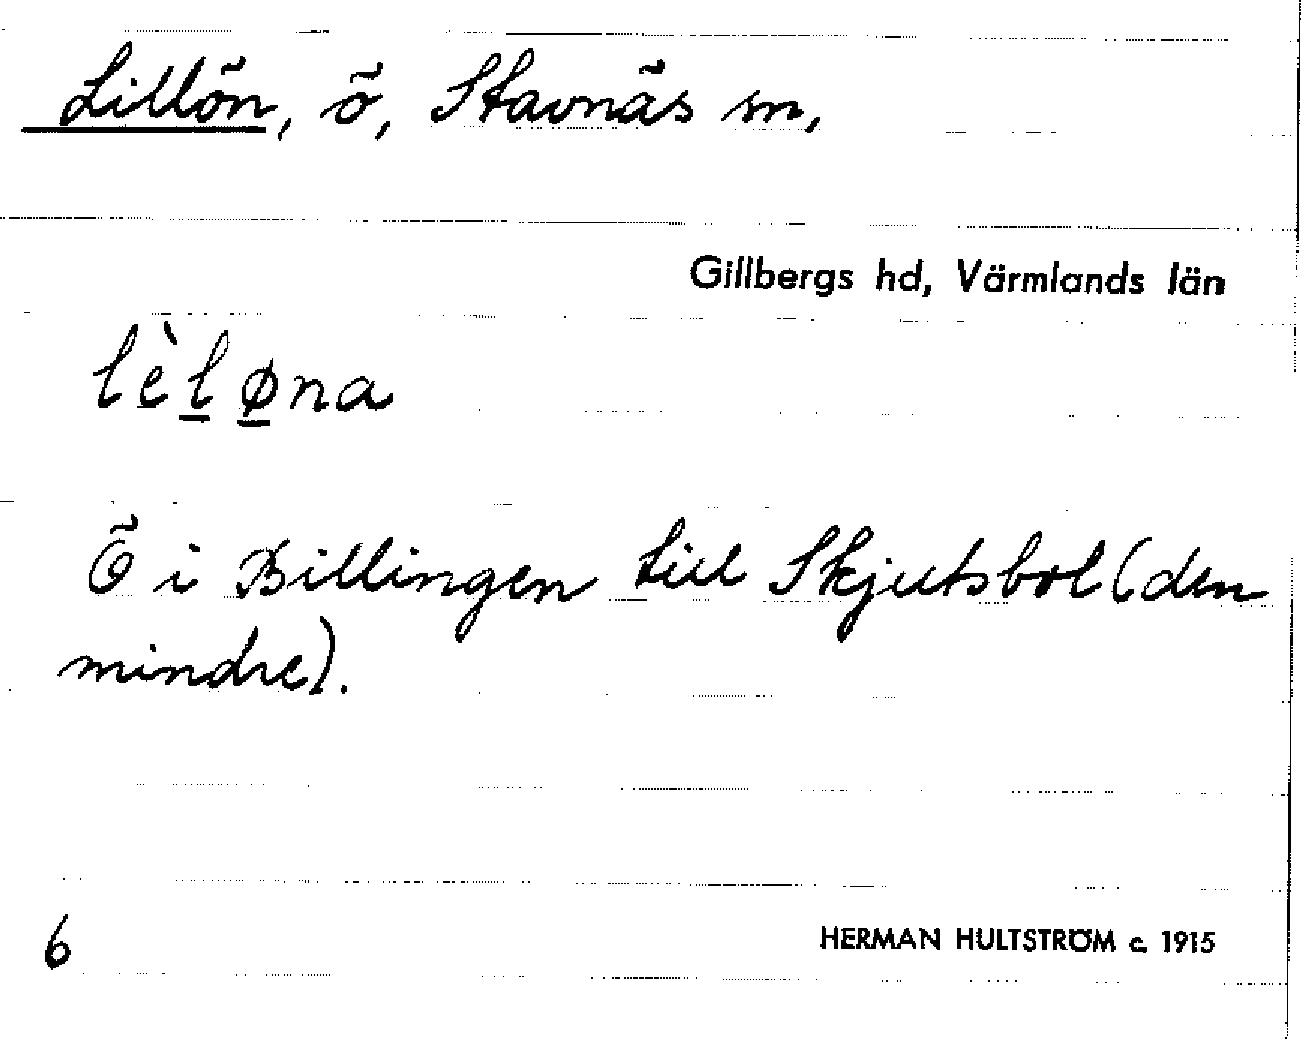 Lillön, ö, Stavnäs sn,
Gillbergs hd, Värmlands län
lèl̲ø̲na
Ö i Billingen till Skjutsbol (den
mindre).
6
HERMAN HULTSTRÖM c. 1915